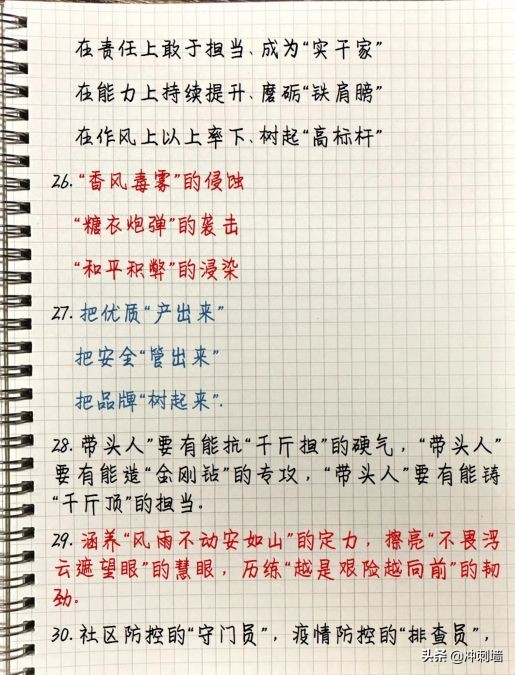 在责任上敢于担当、成为“实干家”
在能力上持续提升、磨砺“铁肩膀”
在作风上以上率下、树起“高标杆”
26.“香风毒雾”的侵蚀
“糖衣炮弹”的袭击
“和平积弊”的浸染
27.把优质“产出来”
把安全“管出来”
把品牌“树起来”.
28.带头人”要有能抗“千斤担”的硬气，“带头人”
要有能造“金刚钻”的专攻，“带头人”要有能铸
“千斤顶”的担当。
29.涵养“风雨不动安如山”的定力，擦亮“不畏浮
云遮望眼”的慧眼，历练“越是艰险越向前”的韧
劲。
30.社区防控的“守门员”，疫情防控的“排查员”，
头条@冲刺墙